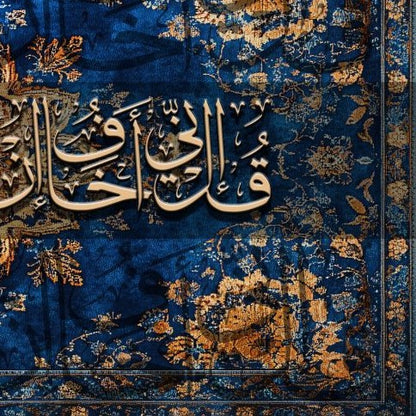 قُل إِنِّي أَخَافُ إِن